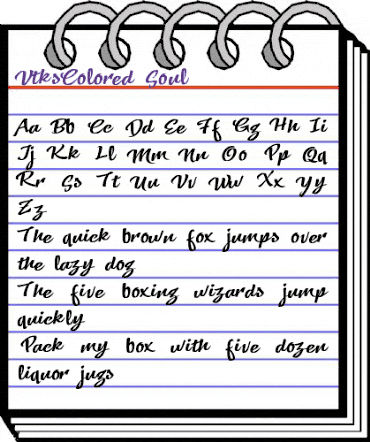 VtksColored Soul
Aa Bb Cc Dd Ee Ff Gg Hh Ii
Jj Kk Ll Mm Nn Oo Pp Qq
Rr Ss Tt Uu Vv Ww Xx Yy
Zz
The quick brown fox jumps over
the lazy dog
The five boxing wizards jump
quickly
Pack my box with five dozen
liquor jugs